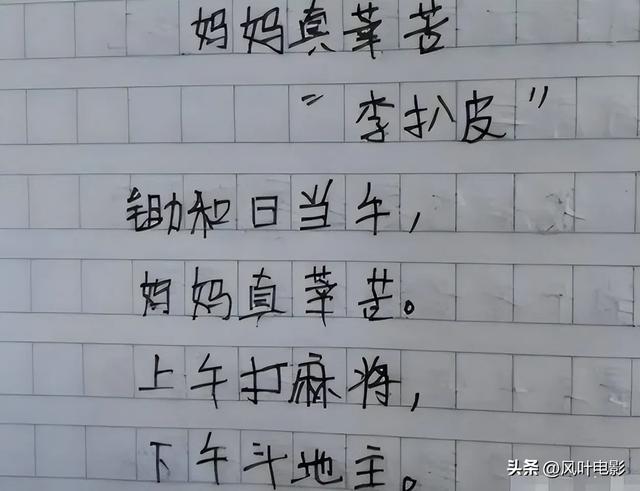 妈妈真莘苦
“李扒皮”
锄和日当午,
妈妈真莘苦。
上午打麻将,
下午斗地主。
头条 @风叶电影